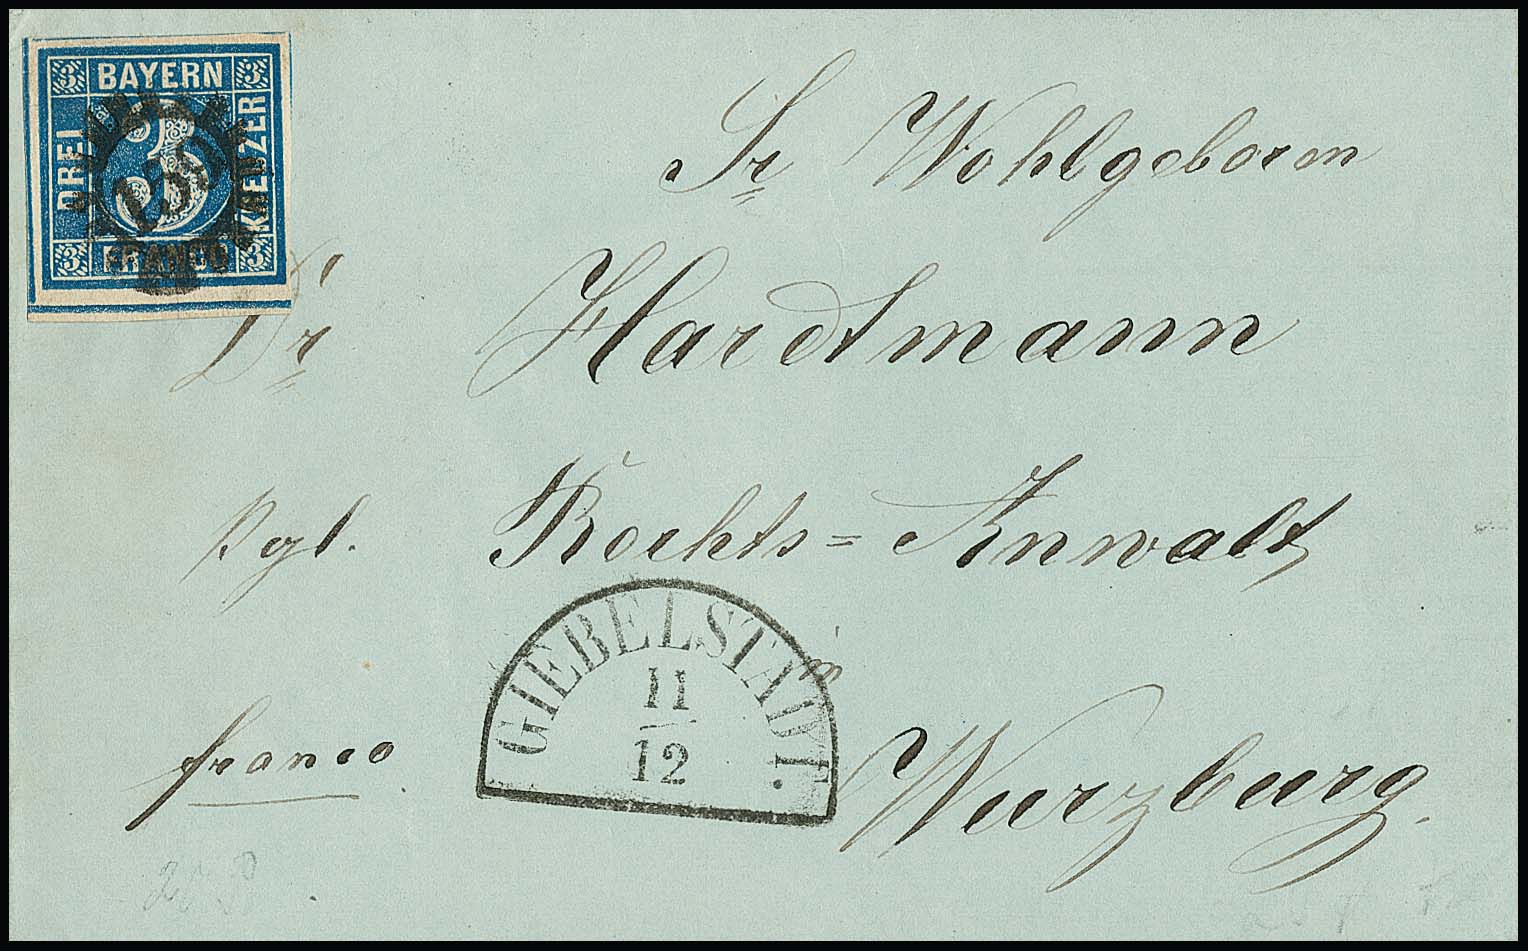 3 BAYERN 3
DREI
3
KREUZER
3 FRANCO 3
Sr Wohlgeborn
Dr Hardtmann
Kgl. Rechts=Anwalt
GIEBELSTADT.
11
12
in
franco.
Wurzburg.